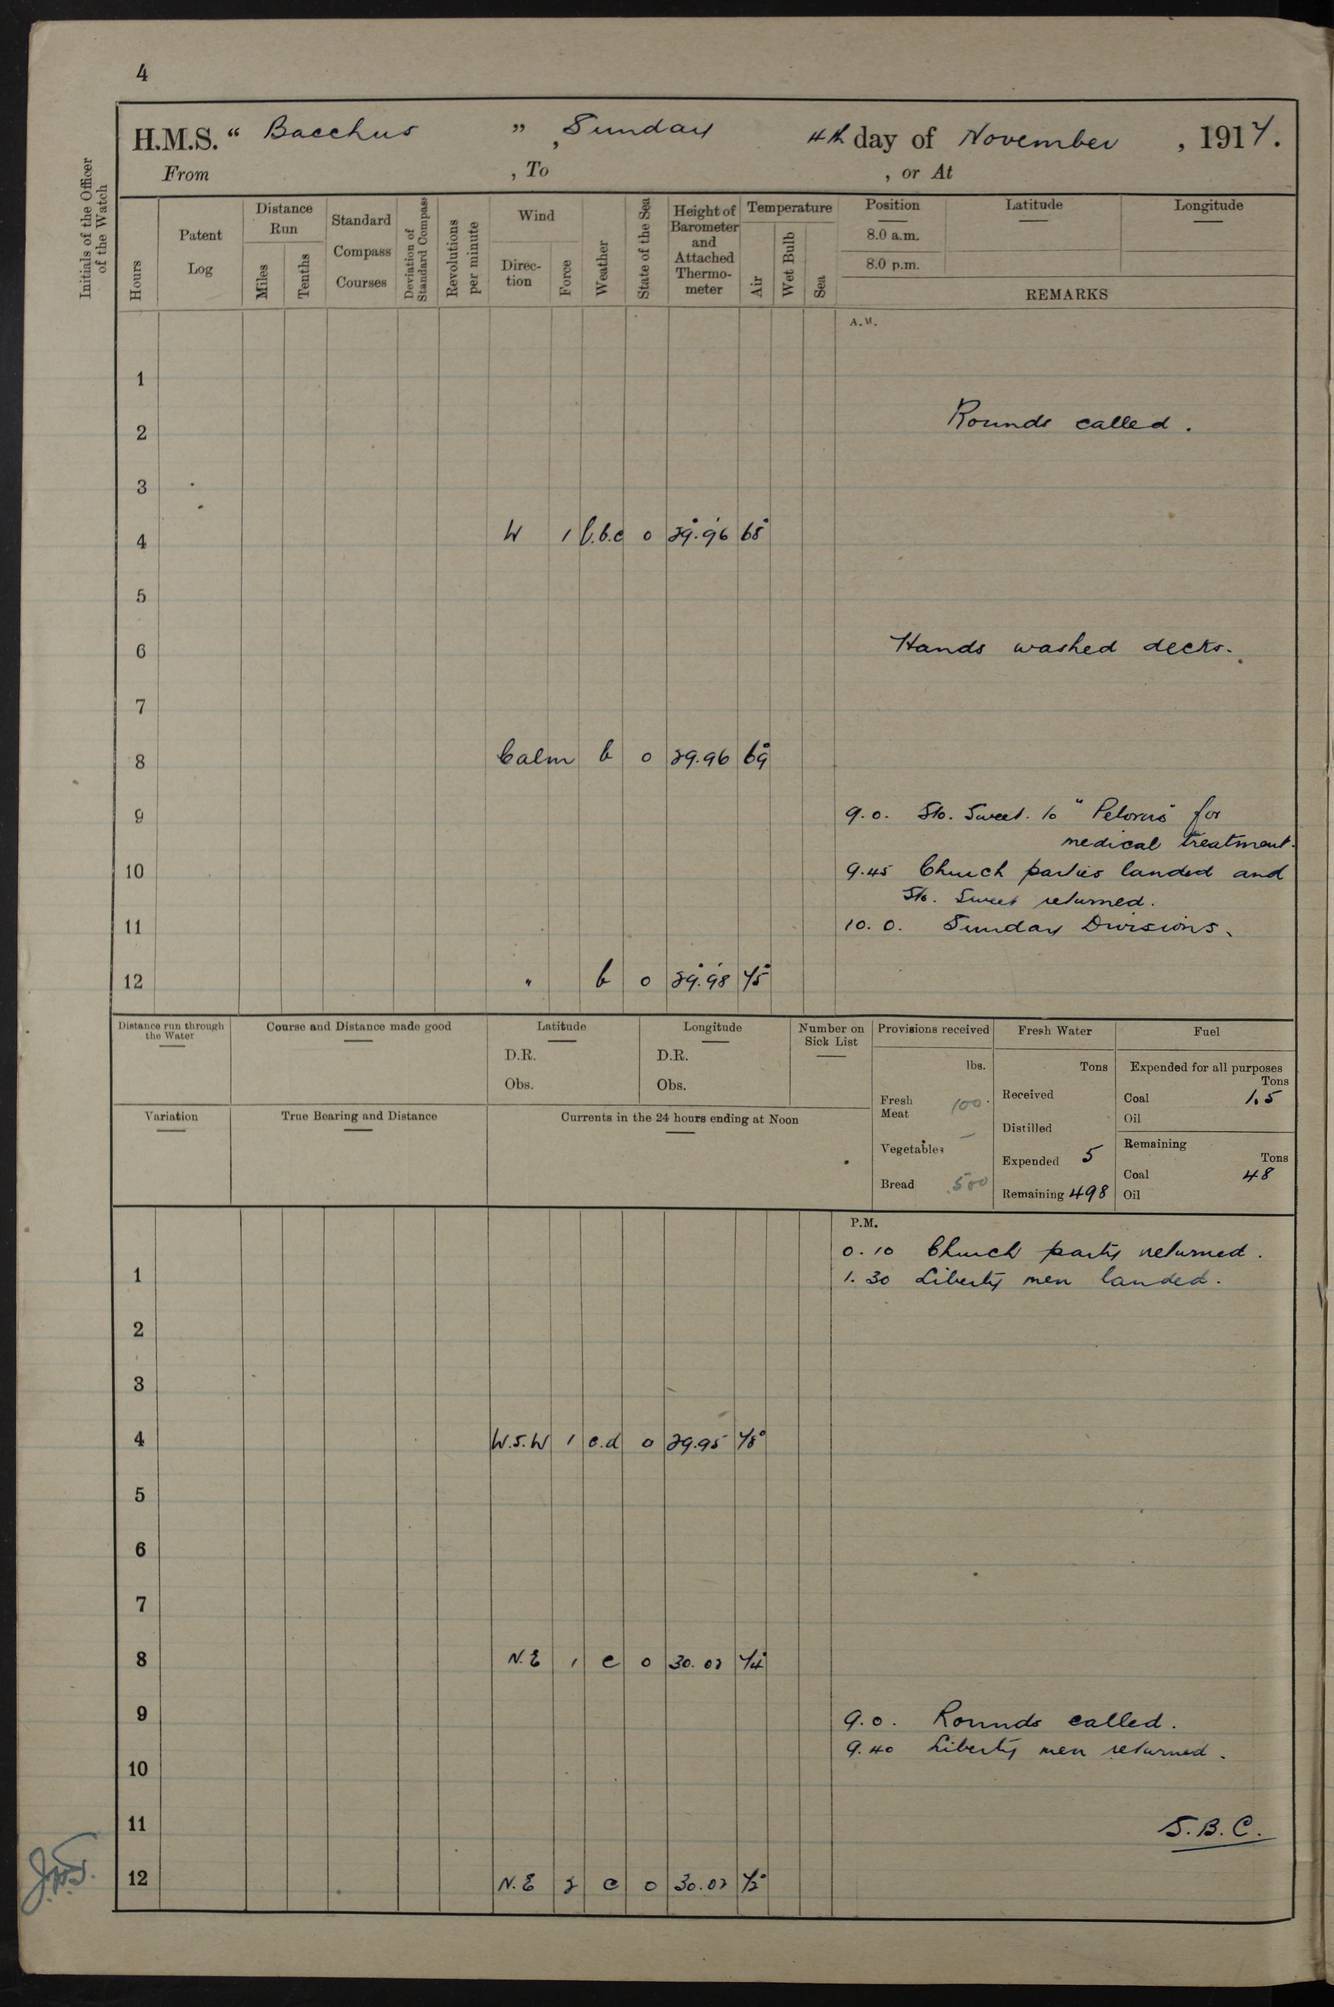 4
H.M.S. “ Bacchus ” , Sunday 4th day of November , 1917.
From , To , or At
Initials of the Officer of the Watch
Hours
Patent Log
Distance Run
Miles
Tenths
Standard Compass Courses
Deviation of Standard Compass
Revolutions per minute
Wind
Direc-tion
Force
Weather
State of the Sea
Height of Barometer and Attached Thermo-meter
Temperature
Air
Wet Bulb
Sea
Position Latitude Longitude
8.0 a.m.
8.0 p.m.
REMARKS
A.M.
1
2 Rounds called.
3
4 W 1 b.c 0 29.96 68°
5
6 Hands washed decks.
7
8 Calm b 0 29.96 69°
9 9.0. Sto. Sweet. to "Pelorus" for
medical treatment.
10 9.45 Church parties landed and
Sto. Sweet returned.
11 10.0. Sunday Divisions.
12 " b 0 29.98 75°
Distance run through the Water
Course and Distance made good
Latitude
D.R.
Obs.
Longitude
D.R.
Obs.
Number on Sick List
Variation
True Bearing and Distance
Currents in the 24 hours ending at Noon
Provisions received
lbs.
Fresh Meat 100
Vegetables —
Bread 500
Fresh Water
Tons
Received
Distilled
Expended 5
Remaining 498
Fuel
Expended for all purposes
Tons
Coal 1.5
Oil
Remaining
Tons
Coal 48
Oil
P.M.
0.10 Church party returned.
1 1.30 Liberty men landed.
2
3
4 W.S.W 1 c.d 0 29.95 78°
5
6
7
8 N.E 1 c 0 30.02 74°
9 9.0. Rounds called.
9.40 Liberty men returned.
10
11 S.B.C.
12 N.E 2 c 0 30.02 72°